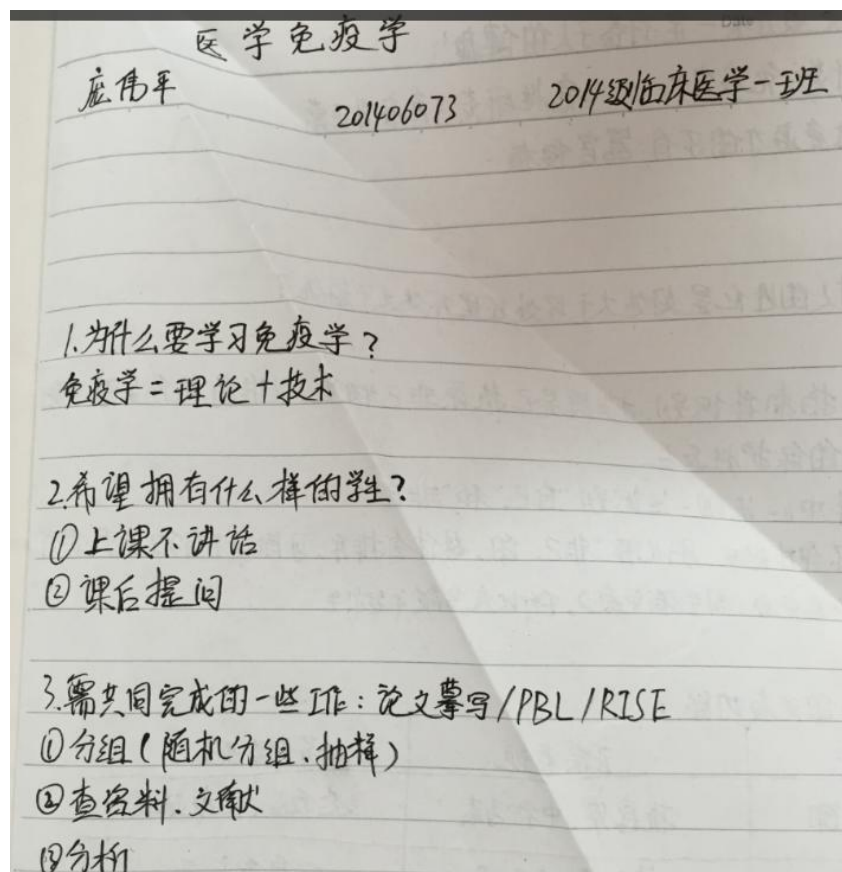 医学免疫学
庞伟平 201406073 2014级临床医学一班
1.为什么要学习免疫学?
免疫学=理论+技术
2.希望拥有什么样的学生?
①上课不讲话
②课后提问
3.需共同完成的一些工作:论文摹写/PBL/RISE
①分组(随机分组、抽样)
②查资料、文献
③分析